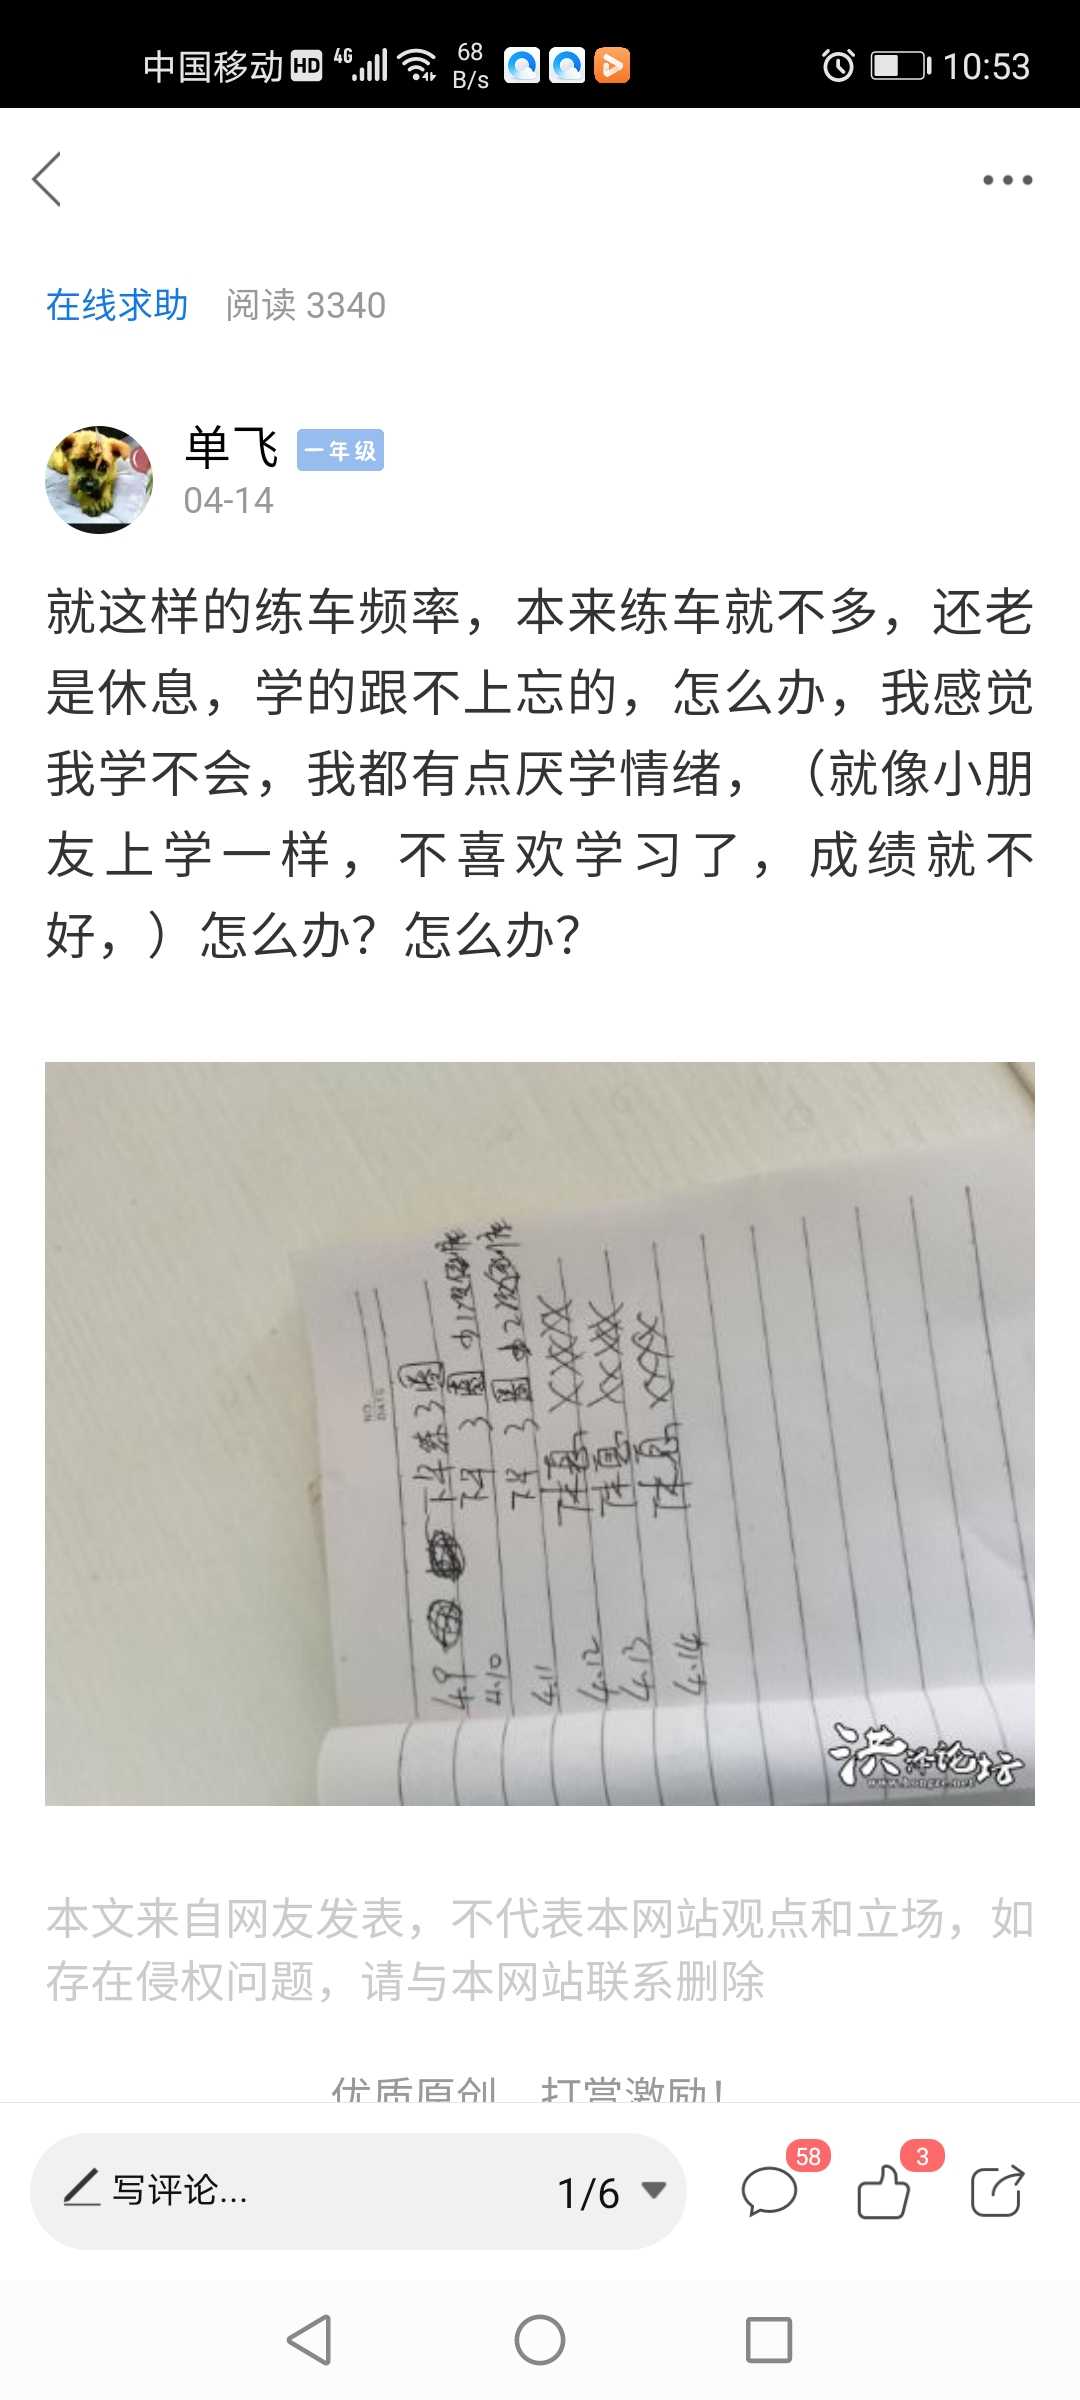 中国移动 HD 4G 68 B/s 10:53
在线求助 阅读 3340
单飞 一年级
04-14
就这样的练车频率，本来练车就不多，还老
是休息，学的跟不上忘的，怎么办，我感觉
我学不会，我都有点厌学情绪，（就像小朋
友上学一样，不喜欢学习了，成绩就不
好，）怎么办？怎么办？
NO.
DATE
4.9 下午练3圈
4.10 下午 3圈
4.11 下午 3圈
4.12 休息 XXXX
4.13 休息 XXXX
4.14 休息 XXX
洪泽论坛
www.hongze.net
本文来自网友发表，不代表本网站观点和立场，如
存在侵权问题，请与本网站联系删除
优质原创 打赏激励！
写评论... 1/6 58 3